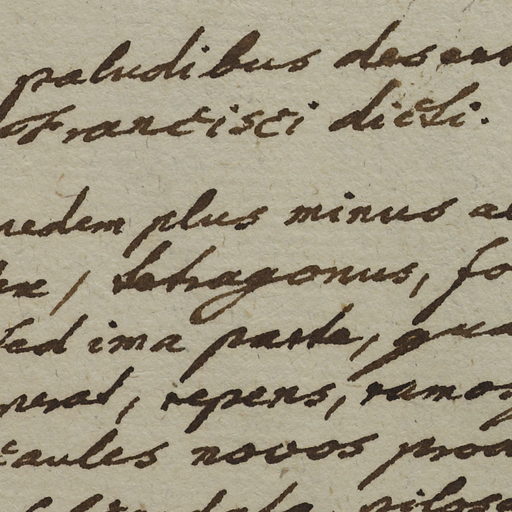 paludibus deser
Francisci dicti.
pedem plus minus a
tetragonus, fo
sed ima parte, qua
repens, ramos
caules novos prod
pilos